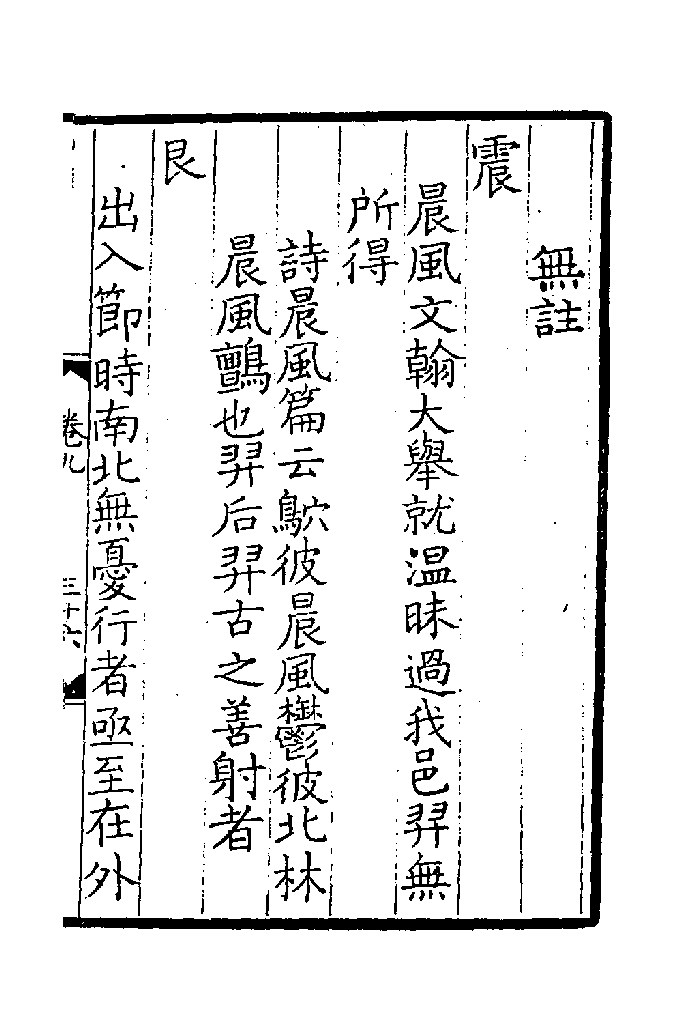 無註
震
晨風文翰大舉就温昧過我邑羿無
所得
詩晨風篇云鴥彼晨風鬱彼北林
晨風鸇也羿后羿古之善射者
艮
出入節時南北無憂行者亟至在外
卷九
三十六